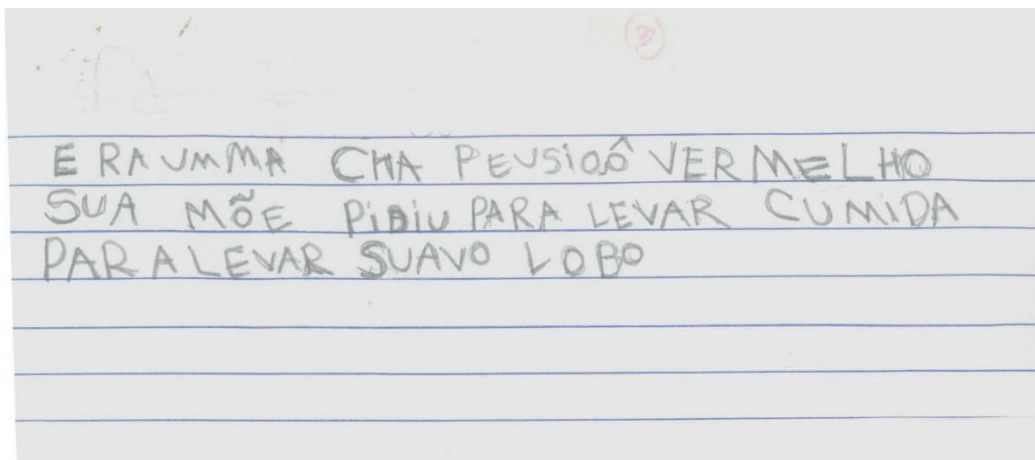 E RA UMMA CHA PEUSIOÔ VERMELHO
SUA MÕE PIDIU PARA LEVAR CUMIDA
PARA LEVAR SUAVO LOBO